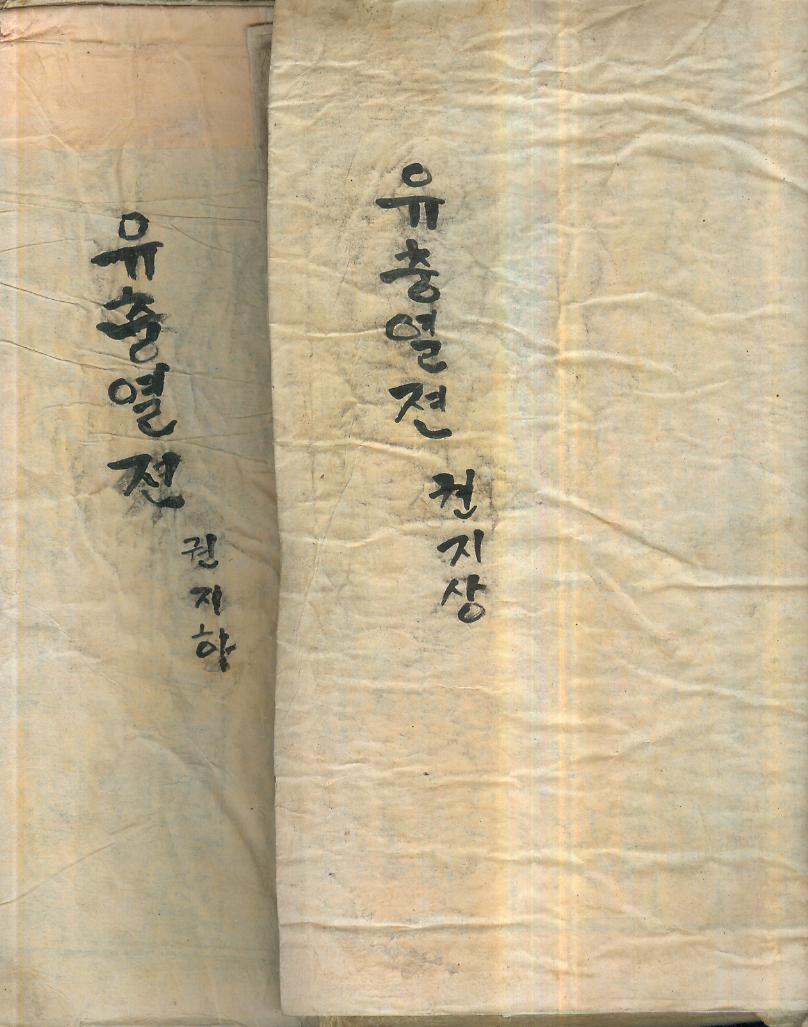 유충열젼
권지상
유충열전
권지하